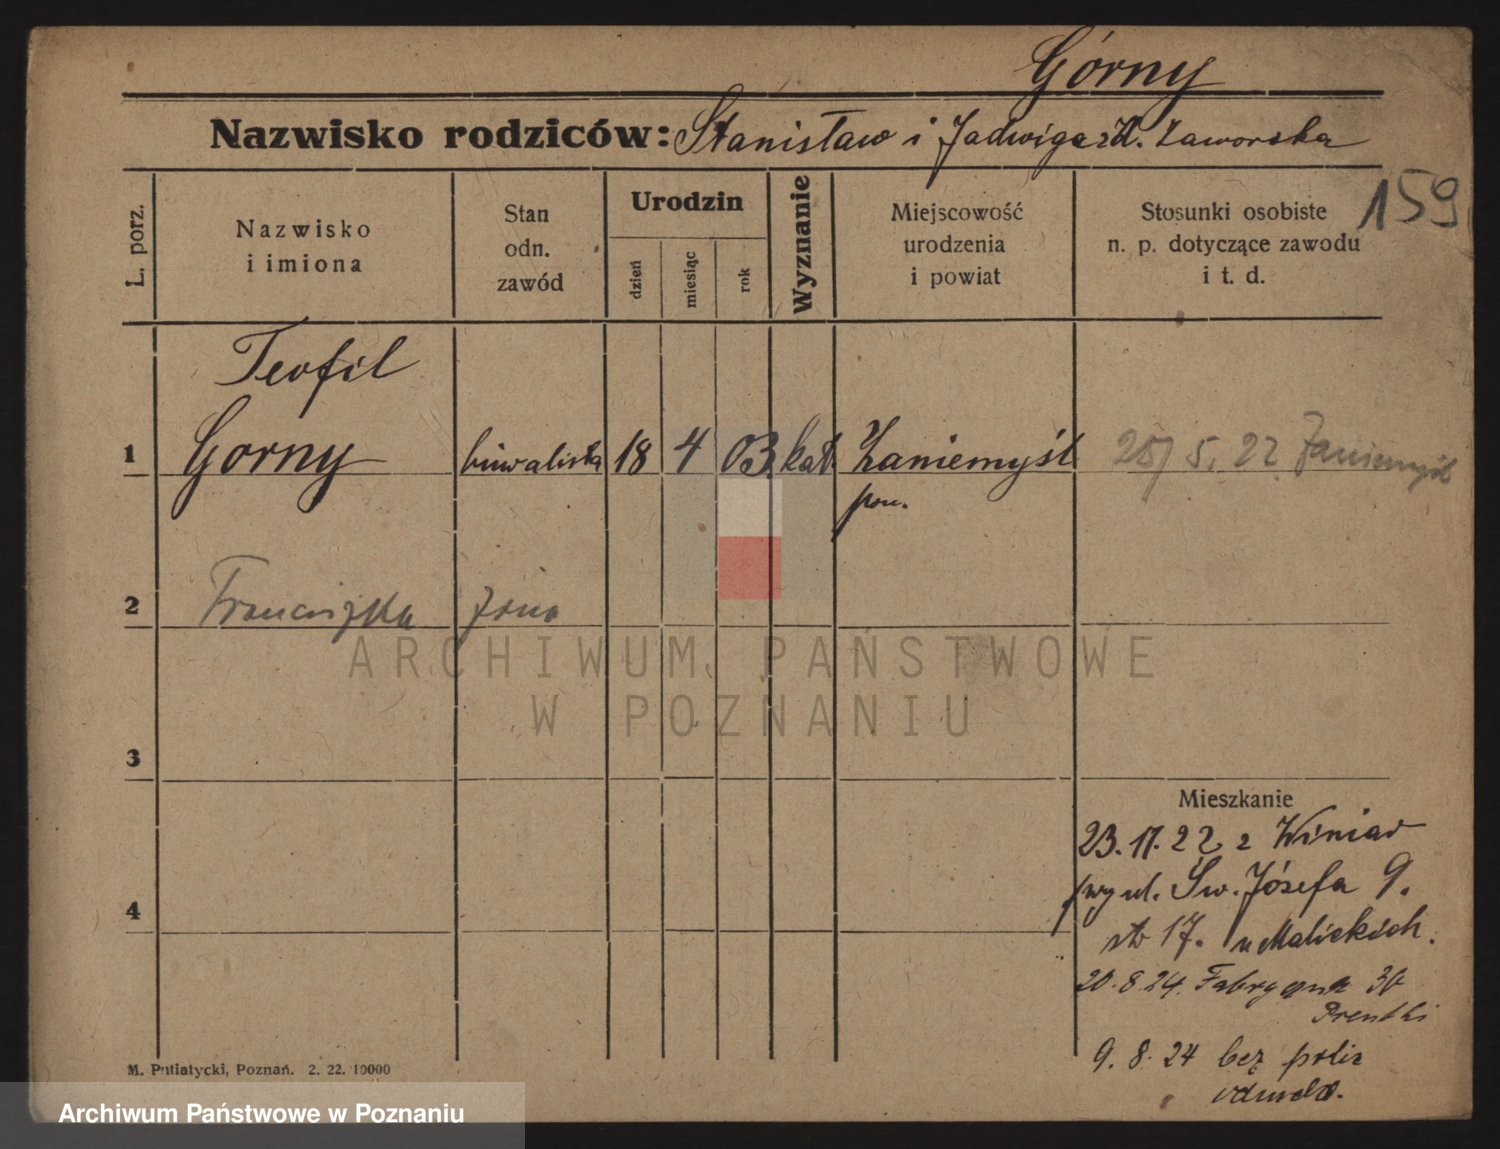 Górny
Nazwisko rodziców: Stanisław i Jadwiga zd. Zaworska
159
L. porz.
Nazwisko
i imiona
Stan
odn.
zawód
Urodzin
dzień
miesiąc
rok
Wyznanie
Miejscowość
urodzenia
i powiat
Stosunki osobiste
n. p. dotyczące zawodu
i t. d.
Teofil
1 Gorny biuralista 18 4 03 kat. Zaniemyśl 25/5. 22 Zaniemyśl
pow.
2 Franciszka żona
3
4
Mieszkanie
23. 11. 22 z Winiar
przy ul. Św. Józefa 9.
17. u Malickich.
20. 8. 24. Fabryczna 30
9. 8. 24 bez
M. Putiatycki, Poznań. 2. 22. 10000
ARCHIWUM PAŃSTWOWE
W POZNANIU
Archiwum Państwowe w Poznaniu